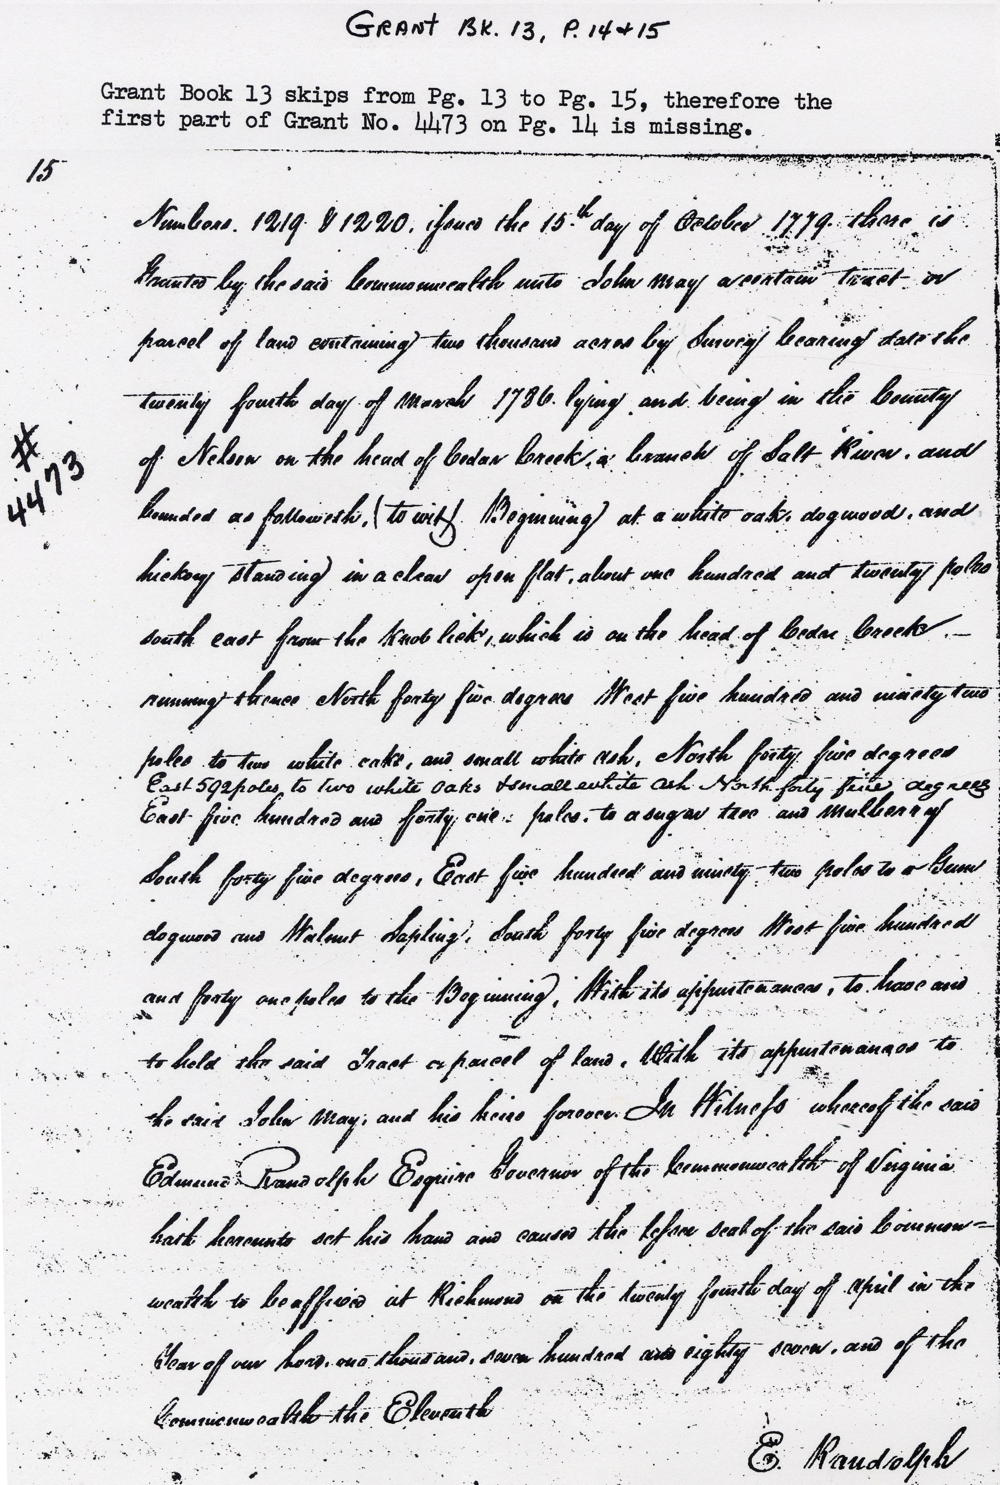 GRANT BK. 13, P. 14 & 15
Grant Book 13 skips from Pg. 13 to Pg. 15, therefore the
first part of Grant No. 4473 on Pg. 14 is missing.
15
Numbers. 1219 & 1220. issued the 15th day of October 1779. there is
Granted by the said Commonwealth unto John May a certain tract or
parcel of land containing two thousand acres by Survey bearing date the
twenty fourth day of March 1786. lying and being in the County
of Nelson on the head of Cedar Creek, a branch of Salt River. and
# 4473
bounded as followeth, (to wit) Beginning at a white oak. dogwood. and
hickory standing in a clear open flat, about one hundred and twenty poles
south east from the Knob lick, which is on the head of Cedar Creek. —
running thence North forty five degrees West five hundred and ninety two
poles to two white oaks, and small white ash, North forty five degrees
East 592 poles to two white oaks & small white ash North forty five degrees
East five hundred and forty one poles. to a sugar tree and mulberry
South forty five degrees, East five hundred and ninety two poles to a Gum
dogwood and Walnut Sapling. South forty five degrees West five hundred
and forty one poles to the Beginning, With its appurtenances, to have and
to hold the said Tract or parcel of land. With its appurtenances to
the said John May. and his heirs forever. In Witness whereof the said
Edmund Randolph Esquire Governor of the Commonwealth of Virginia
hath hereunto set his hand and caused the lesser seal of the said Common=
wealth to be affixed at Richmond on the twenty fourth day of April in the
Year of our Lord. one thousand. seven hundred and eighty seven. and of the
Commonwealth the Eleventh
E. Randolph